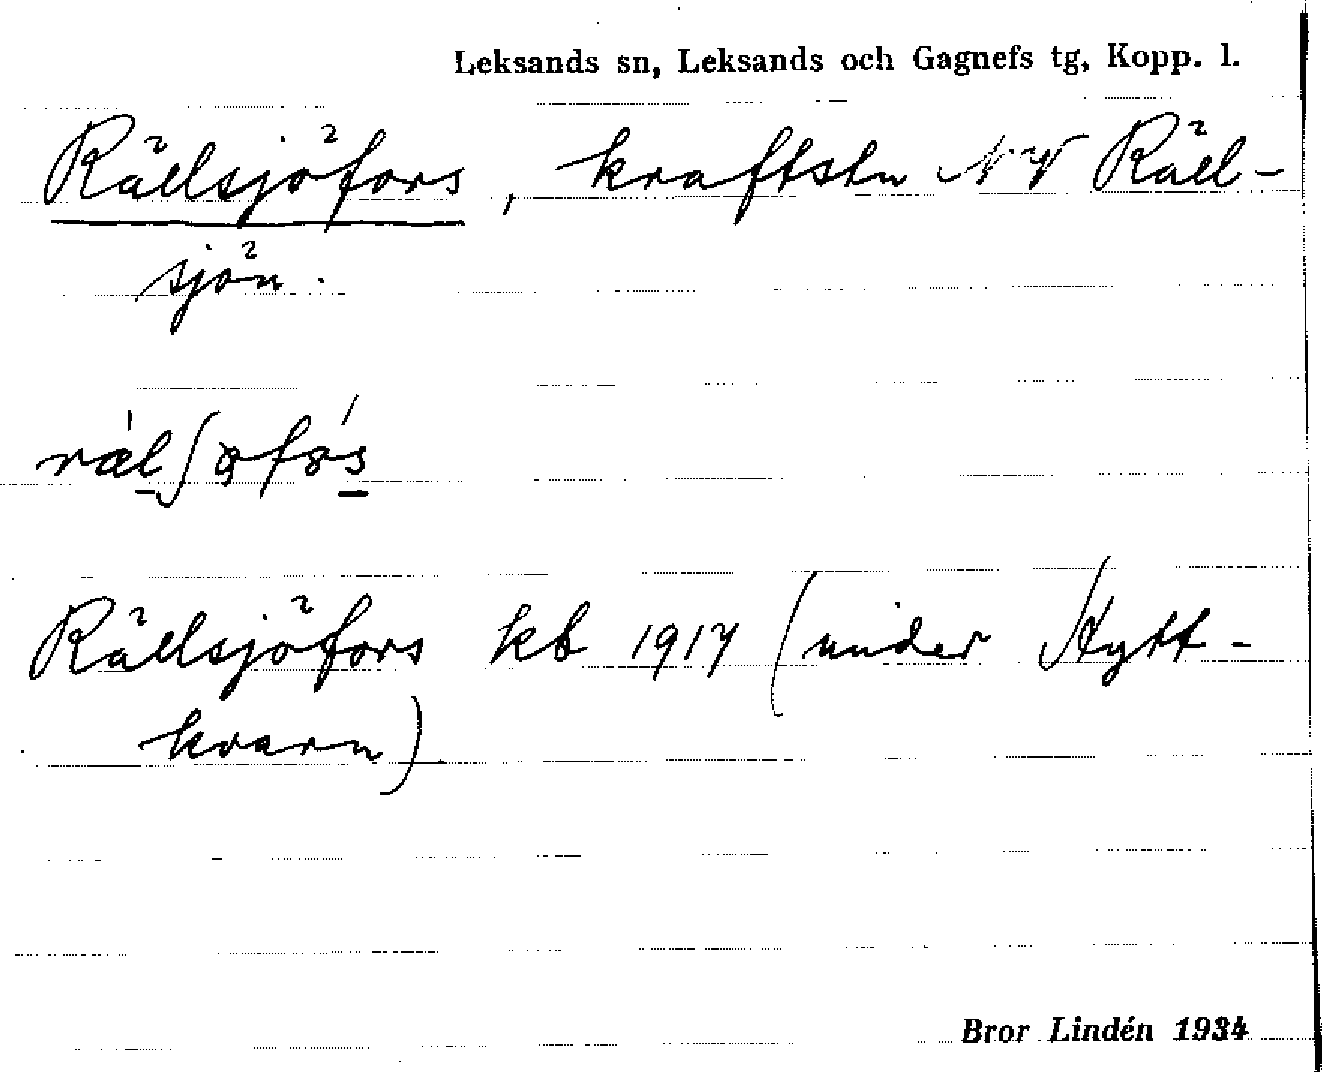 Leksands sn, Leksands och Gagnefs tg, Kopp. l.
Rällsjöfors, kraftstn NV Räll-
sjön.
Rällsjöfors kb 1917 (under Hytt-
kvarn)
Bror Lindén 1934